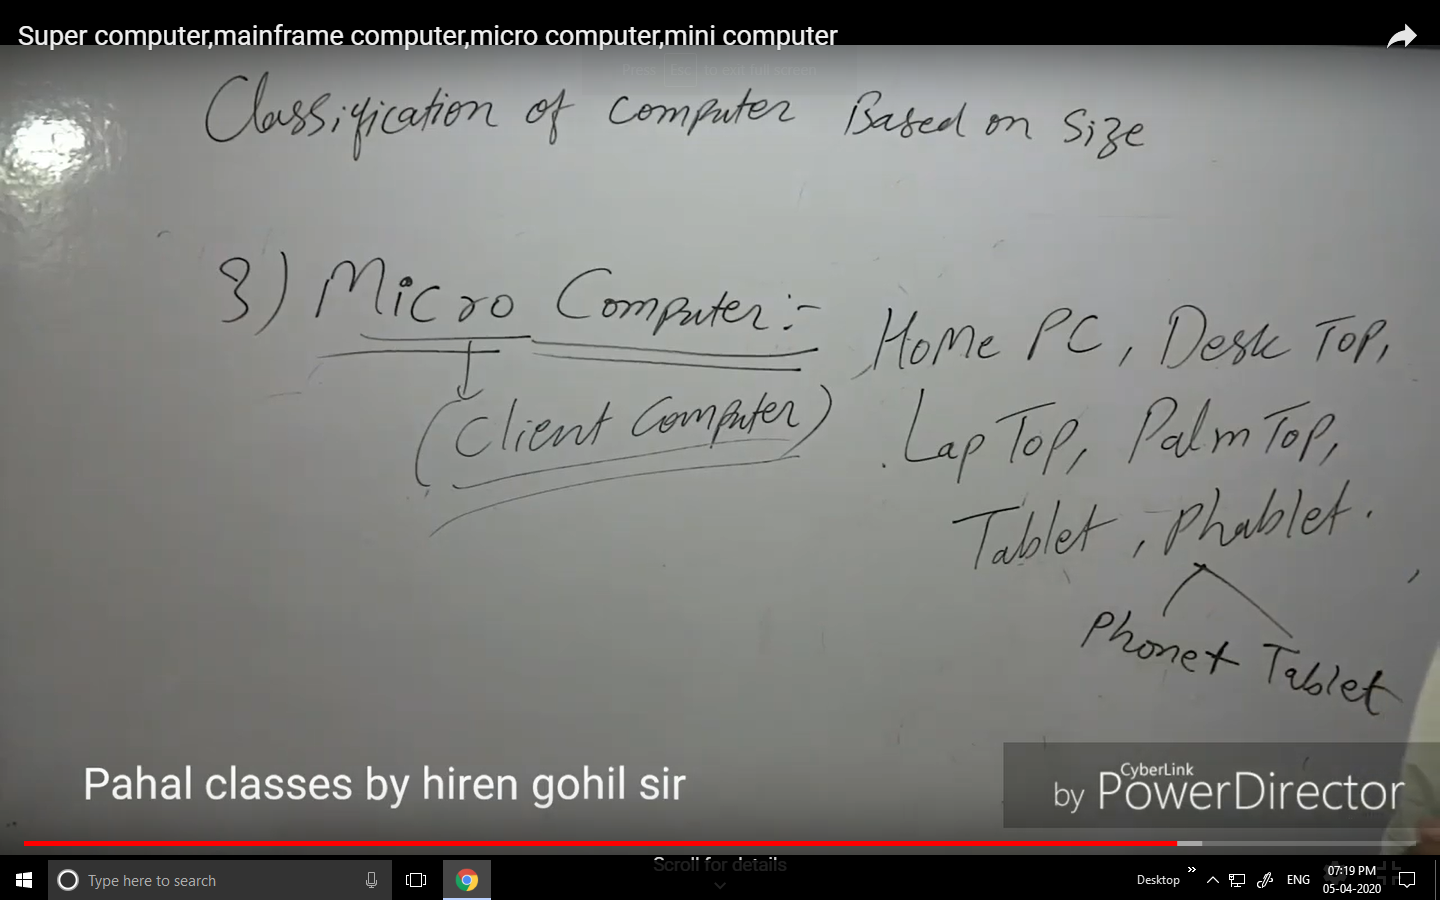 Super computer,mainframe computer,micro computer,mini computer
Press Esc to exit full screen
Classification of computer Based on Size
3) Micro Computer:- Home PC, Desk Top,
(Client Computer) Lap Top, Palm Top,
Tablet, Phablet.
Phone+ Tablet
Pahal classes by hiren gohil sir
by CyberLink PowerDirector
Scroll for details
Type here to search
Desktop
ENG
07:19 PM
05-04-2020